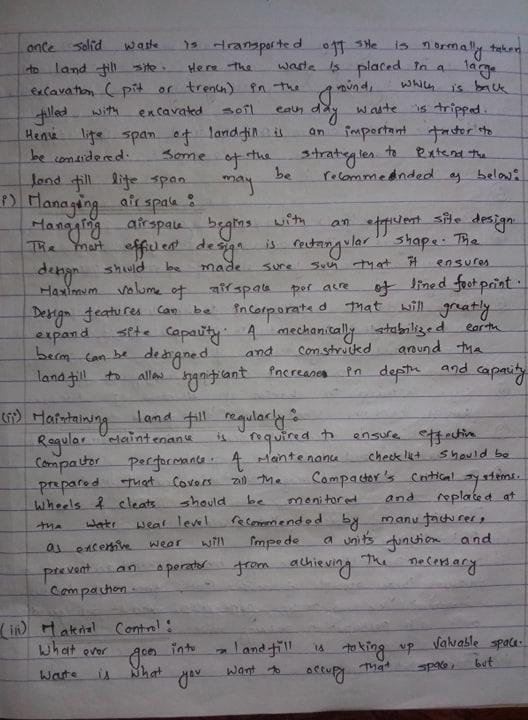 once solid waste is transported off site is normally taken
to land fill site. Here the waste is placed in a large
excavation (pit or trench) in the ground, which is back
filled with excavated soil each day waste is tripped.
Hence life span of landfill is an important factor to
be considered. Some of the strategies to Extend the
land fill life span may be recommeanded as below:
i) Managing air space :
Managing airspace begins with an efficient site design
The most efficient design is rectangular shape. The
design should be made sure such that it ensures
Maximum volume of airspace per acre of lined footprint.
Design features can be incorporated that will greatly
expand site capacity. A mechanically stabilized earth
berm can be designed and constructed around the
landfill to allow significant increases in depth and capacity
(ii) Maintaining land fill regularly :
Regular Maintenance is required to ensure effective
Compactor performance. A Maintenance checklist should be
prepared that covers all the Compactor's critical systems.
Wheels & cleats should be monitored and replaced at
the wear level recommended by manufacturer,
as excessive wear will impede a unit's function and
prevent an operator from achieving the necessary
Compaction.
(iii) Material Control :
What ever goes into a landfill is taking up valuable space.
Waste is what you want to occupy that space, but